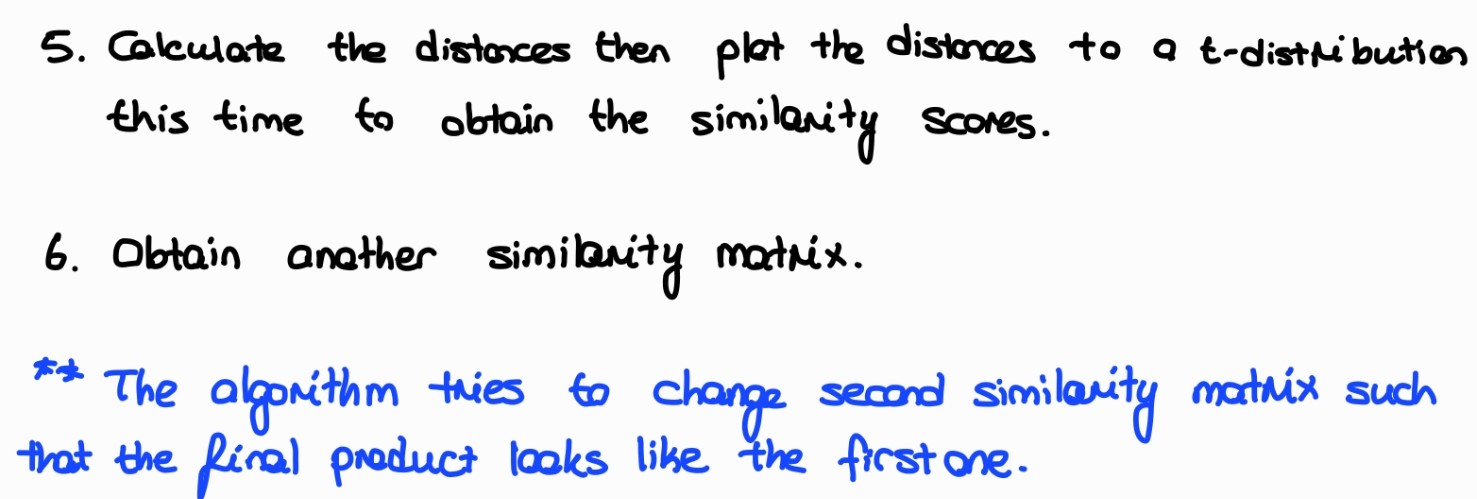 5. Calculate the distances then plot the distances to a t-distribution
this time to obtain the similarity scores.
6. Obtain another similarity matrix.
** The algorithm tries to change second similarity matrix such
that the final product looks like the first one.